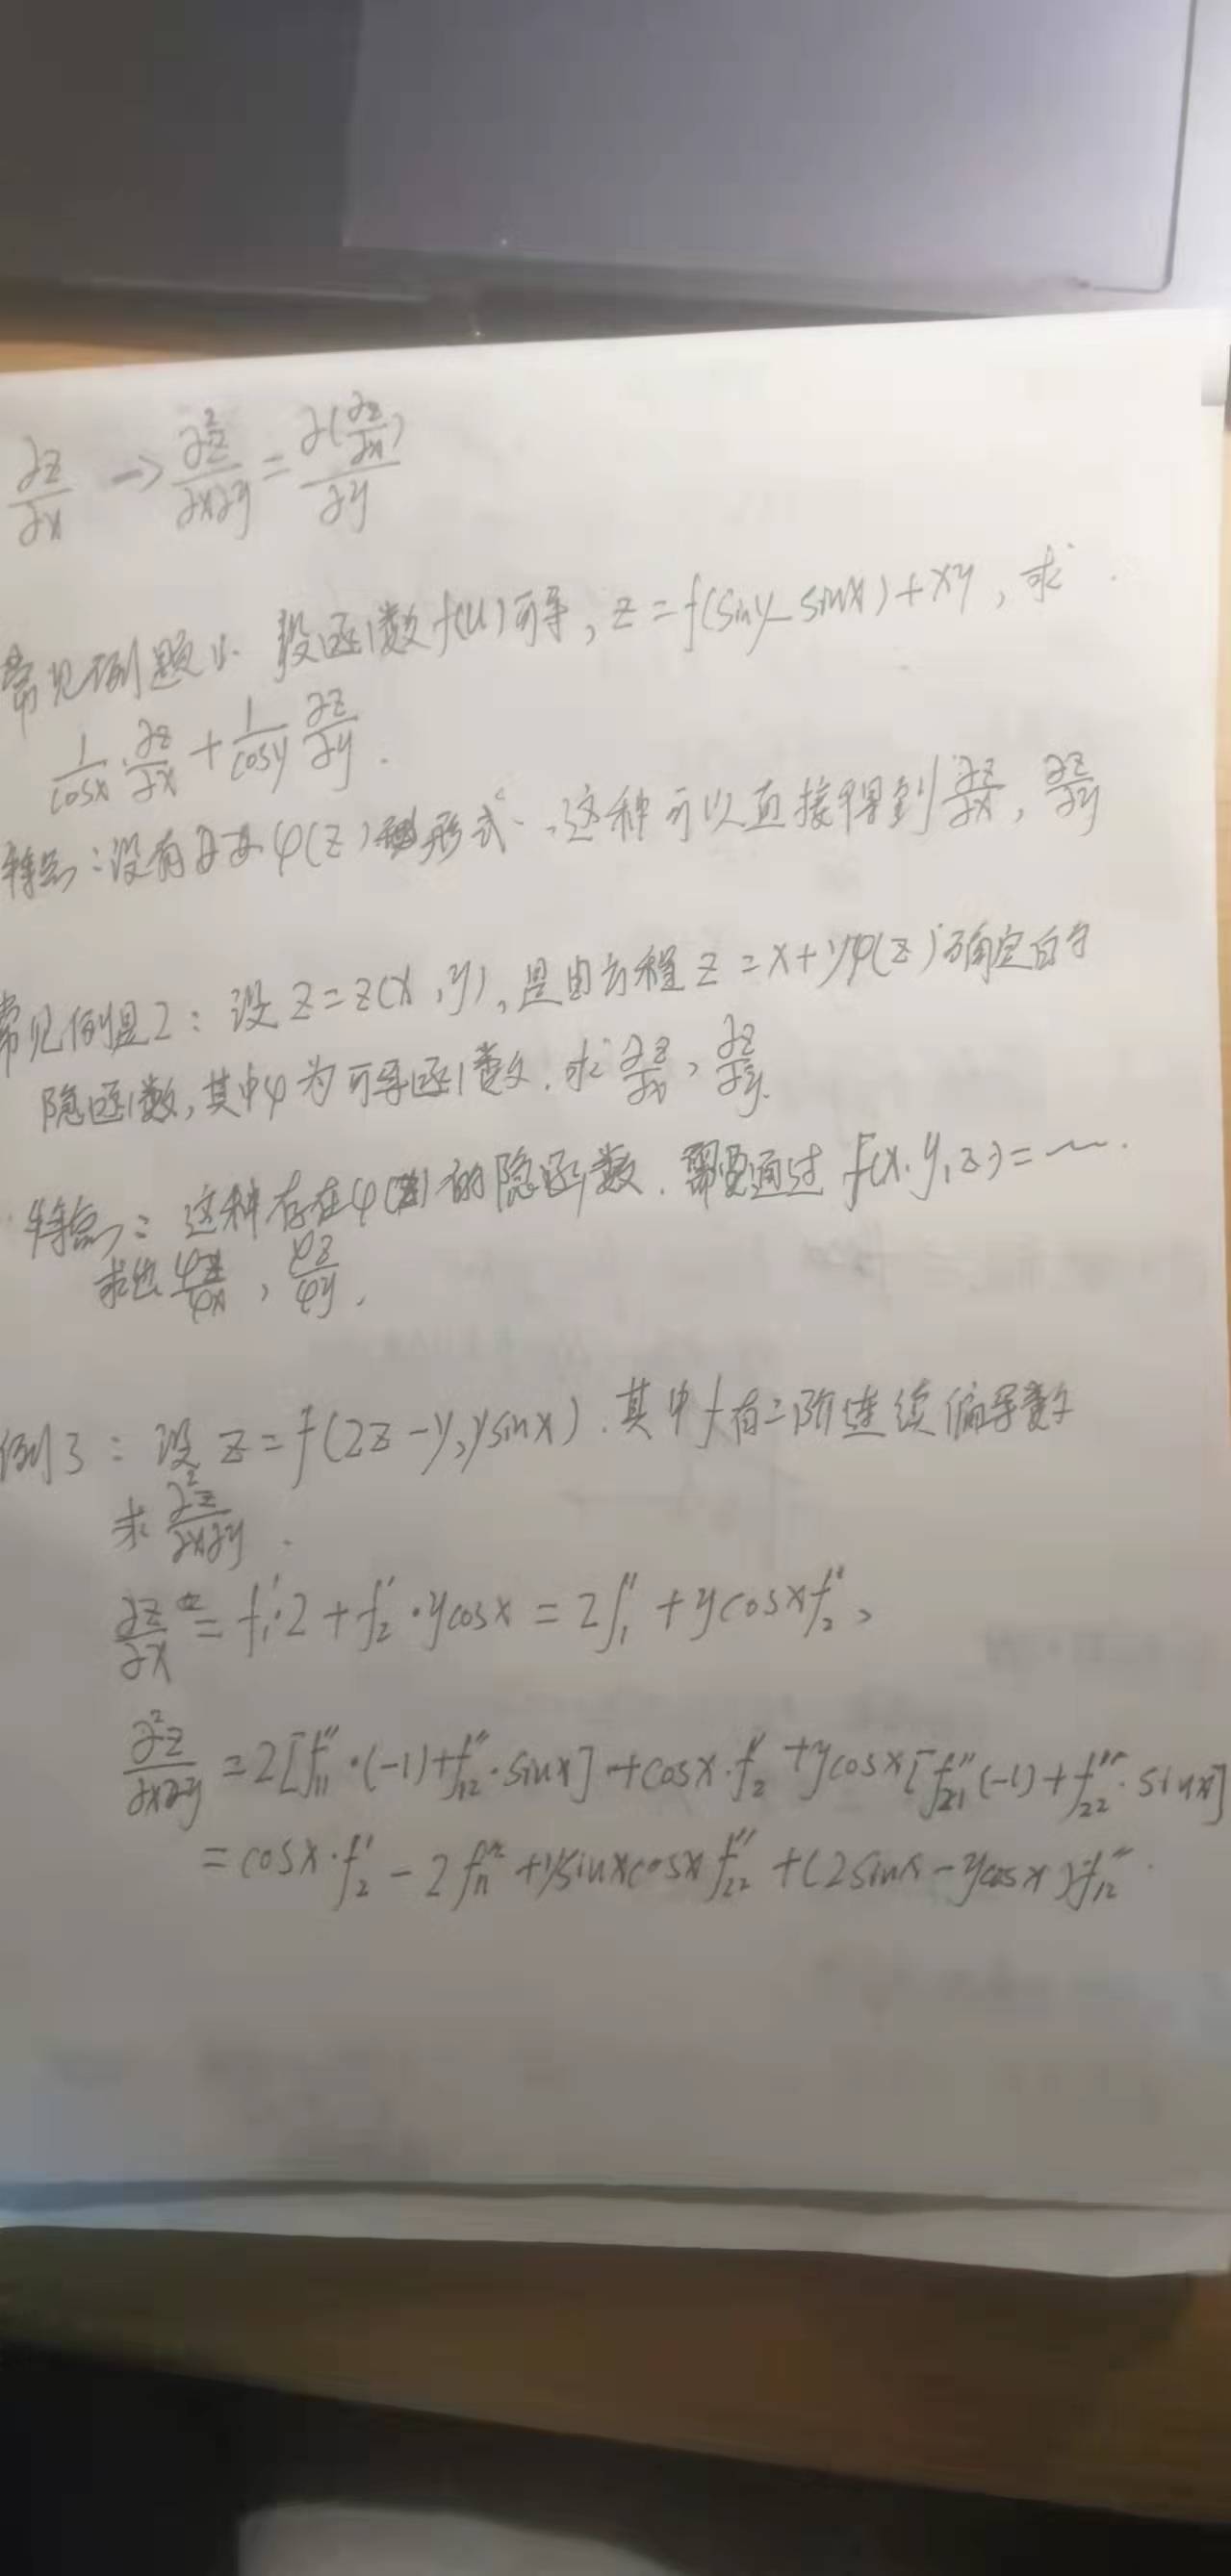 ∂z/∂x → ∂²z/∂x∂y = ∂(∂z/∂x)/∂y
常见例题1: 设函数f(u)可导, z=f(siny-sinx)+xy, 求
1/cosx · ∂z/∂x + 1/cosy ∂z/∂y.
特点:没有 φ(z) 形式,这种可以直接得到∂z/∂x, ∂z/∂y
常见例题2: 设 z=z(x,y), 是由方程 z=x+yφ(z)确定的
隐函数,其中φ为可导函数.求∂z/∂x, ∂z/∂y.
特点: 这种存在φ(z)的隐函数.需要通过 F(x,y,z)=~.
求出 φz/φx, φz/φy.
例3: 设 z=f(2z-y,ysinx).其中f有二阶连续偏导数
求 ∂²z/∂x∂y.
∂z/∂x = f₁'·2+f₂'·ycosx = 2f₁' + ycosxf₂',
∂²z/∂x∂y =2[f₁₁''·(-1)+f₁₂''·sinx]+cosx·f₂' +ycosx[f₂₁''(-1)+f₂₂''·sinx]
=cosx·f₂' - 2f₁₁''+ysinxcosx f₂₂'' +(2sinx-ycosx)f₁₂''.